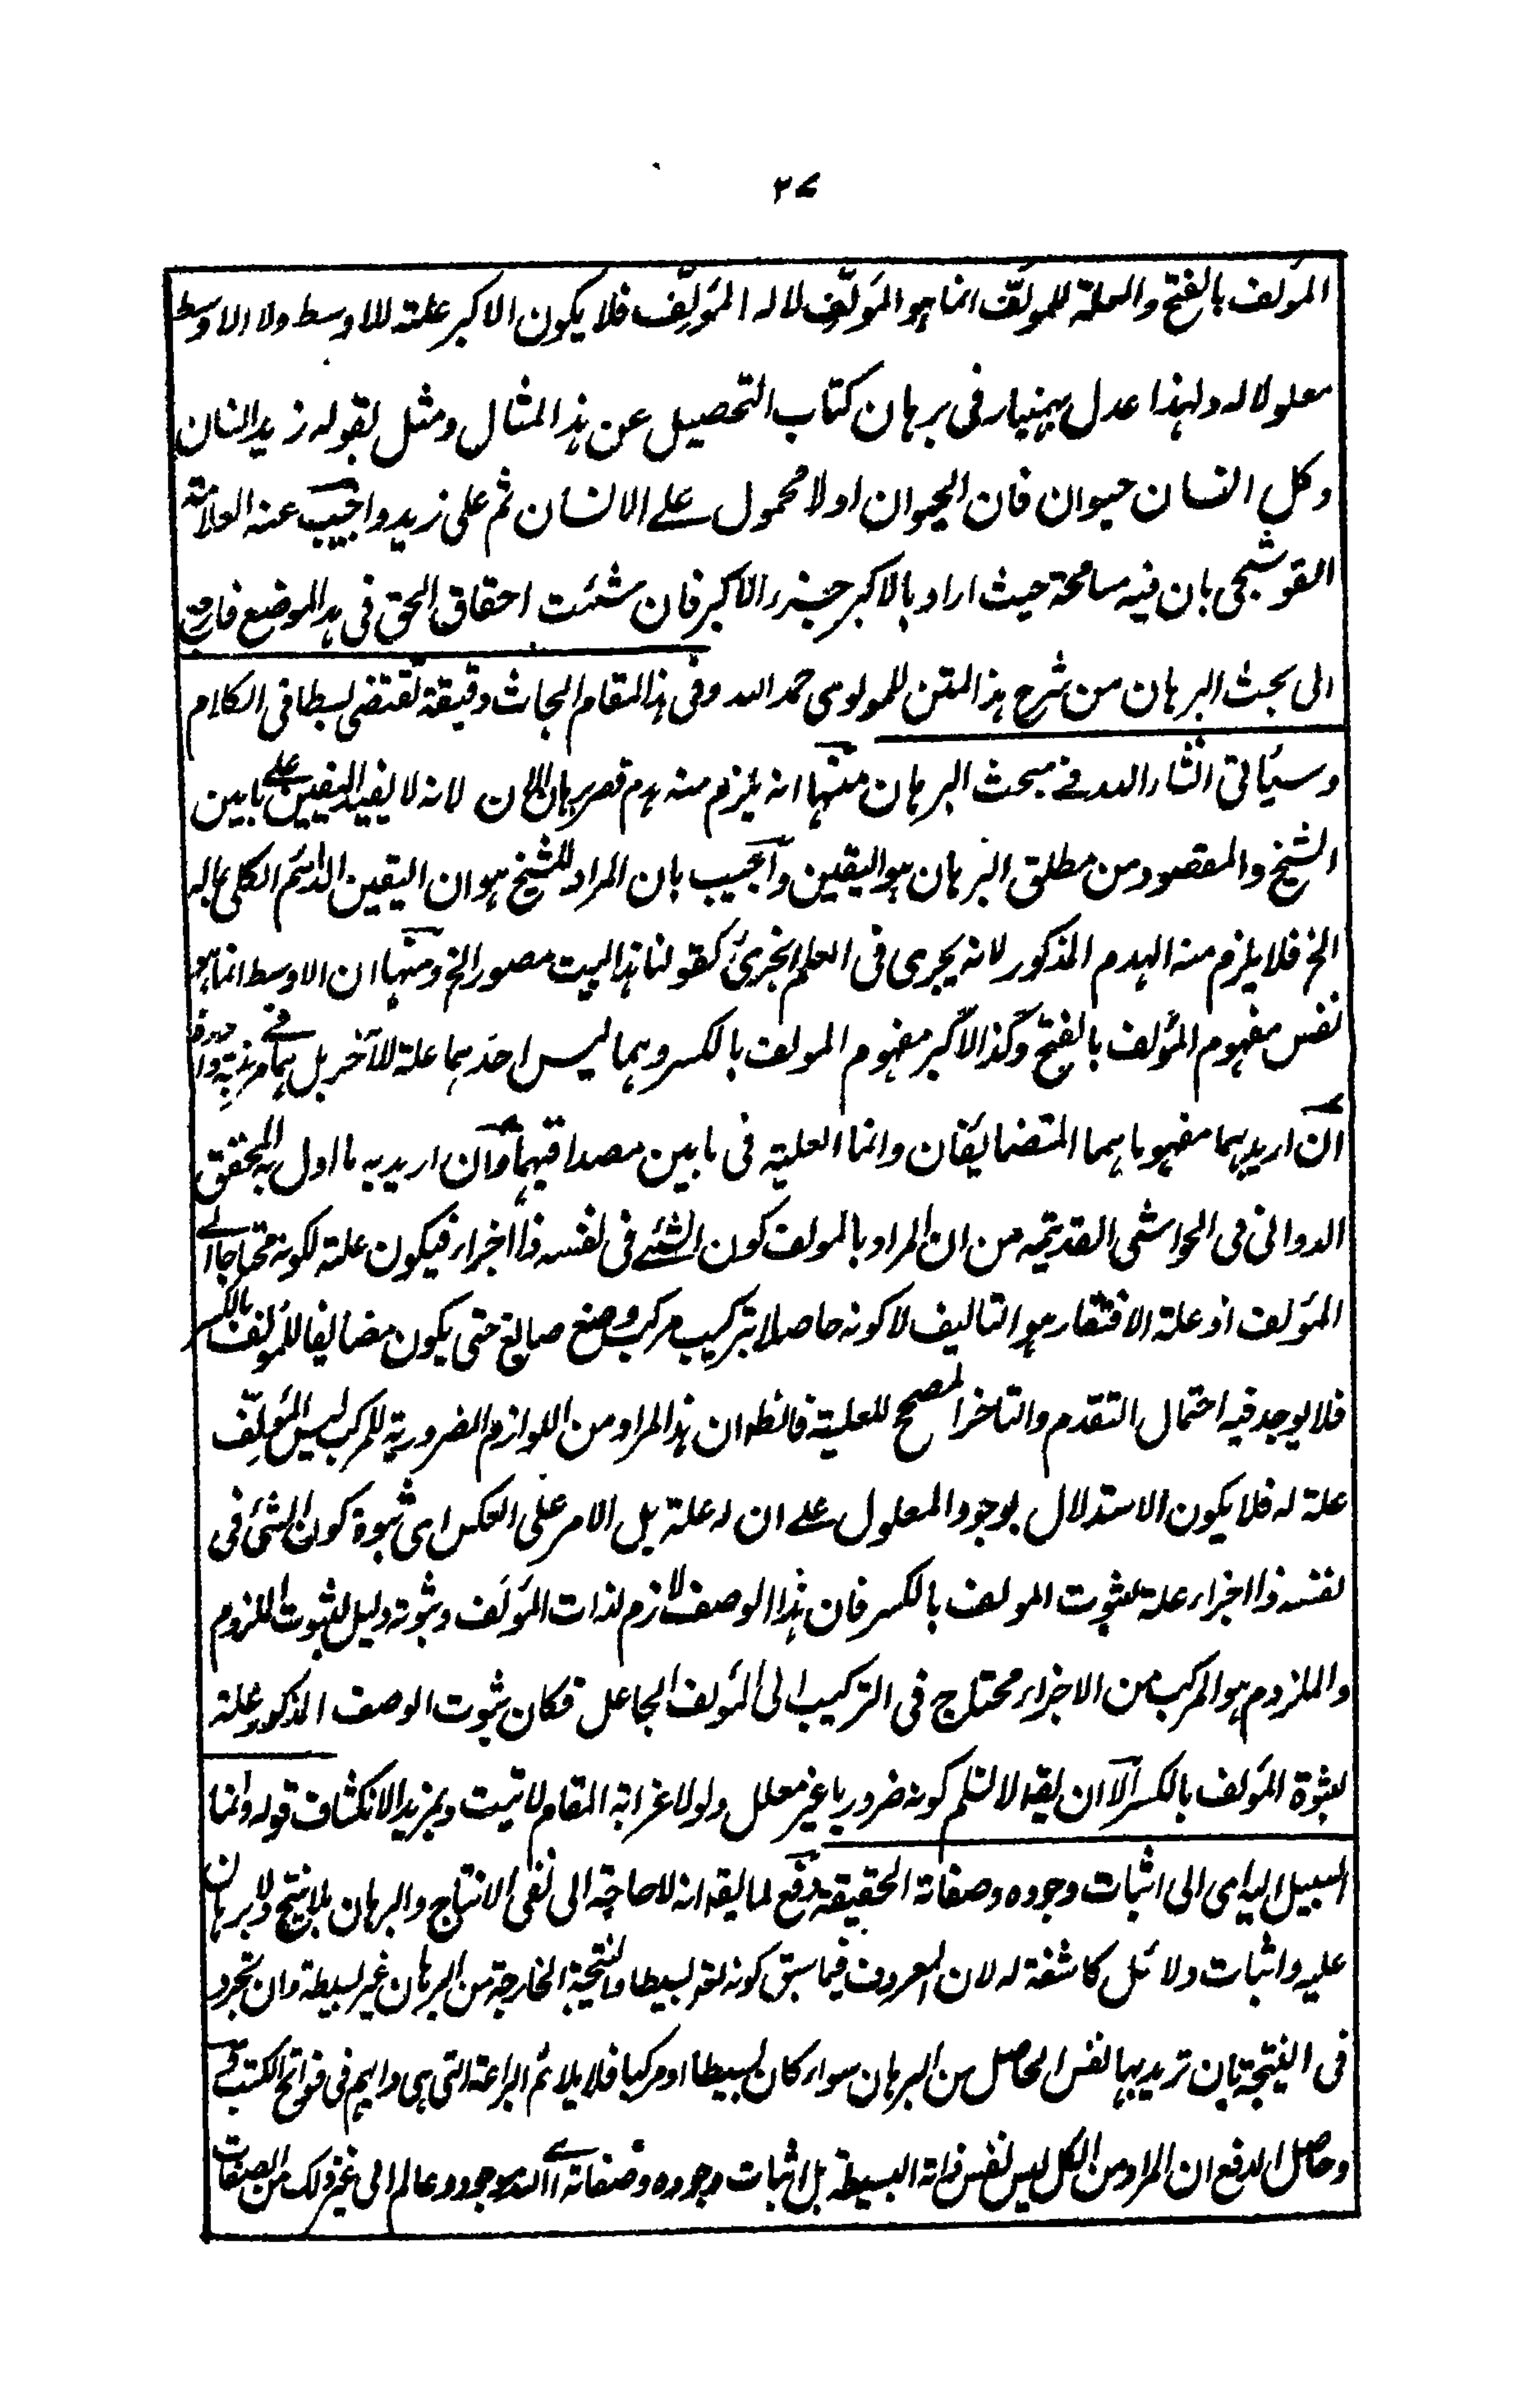 ٢٧
المؤلف بالفتح والعلة للمؤلَّف انما هو المؤلِّف لا له المؤلِّف فلا يكون الاكبر علته للاوسط ولا الاوسط
معلولا له ولهذا عدل بهمنيار فى برهان كتاب التحصيل عن هذا المثال ومثل بقوله زيد انسان
وكل انسان حيوان فان الحيوان اولا محمول على الانسان ثم على زيد واجيب عنه العلامة
القوشجى بان فيه مسامحة حيث اراد بالاكبر جزء الاكبر فان شئت احقاق الحق فى هذا الموضع فارجع
الى بحث البرهان من شرح هذا المتن للمولوى حمد الله وفى هذا المقام ابحاث دقيقة تقتضى بسطا فى الكلام
وسيأتى انشاء الله فى مبحث البرهان منها انه يلزم منه هدم قصر برهان الان لانه لا يفيد اليقين على ما بين
الشيخ والمقصود من مطلق البرهان هو اليقين وأجيب بان المراد للشيخ هو ان اليقين الدائم الكلى بماله
الخ فلا يلزم منه الهدم المذكور لانه يجرى فى العلم الجزئى كقولنا هذا البيت مصور الخ ومنها ان الاوسط انما هو
نفس مفهوم المؤلف بالفتح وكذا الاكبر مفهوم المولف بالكسر وهما ليس احدهما علة للآخر بل هما فى مرتبة واحدة
ان اريد بهما مفهوماهما المتضايفان وانما العلية فى ما بين مصداقيهما وان اريد به ما اول به المحقق
الدوانى فى الحواشى القديمة من ان المراد بالمولف كون الشئ فى نفسه ذا اجزاء فيكون علة لكونه محتاجا الى
المؤلف اذ علة الافتقار هو التاليف لا كونه حاصلا بتركيب مركب وصنع صانع حتى يكون مضايفا للمؤلف بالكسر
فلا يوجد فيه احتمال التقدم والتاخر المصحح للعلية فانظر ان هذا المراد من اللوازم الضرورية للمركب ليس المؤلِّف
علة له فلا يكون الاستدلال بوجود المعلول على ان له علة بل الامر على العكس اى ثبوة كون الشئ فى
نفسه ذا اجزاء علة لثبوت المولف بالكسر فان هذا الوصف لازم لذات المؤلَف وثبوته دليل لثبوت الملزوم
والملزوم هو المركب من الاجزاء محتاج فى التركيب الى المؤلف الجاعل فكان ثبوت الوصف المذكور علة
لثبوة المؤلف بالكسر الا ان يقه لا نسلم كونه ضروريا غير معلل ولولا غرابة المقام لاتيت بمزيد الانكشاف قوله وانما
السبيل اليه اى الى اثبات وجوده وصفاته الحقيقة دفع لما يقه انه لا حاجة الى نفى الانتاج والبرهان بلا ينتج ولا برهان
عليه واثبات دلائل كاشفة له لان المعروف فيما سبق كونه تعه بسيطا والنتيجة الخارجة من البرهان غير بسيطة وان تجرد
فى النتيجة بان تريد بها نفس الحاصل من البرهان سواء كان بسيطا او مركبا فلا يلائم البراعة التى هى دابهم فى فواتح الكتب
وحاصل الدفع ان المراد من الكل ليس نفس ذاته البسيطة بل اثبات وجوده وصفاته اى الله موجود وعالم الى غير ذلك من الصفات